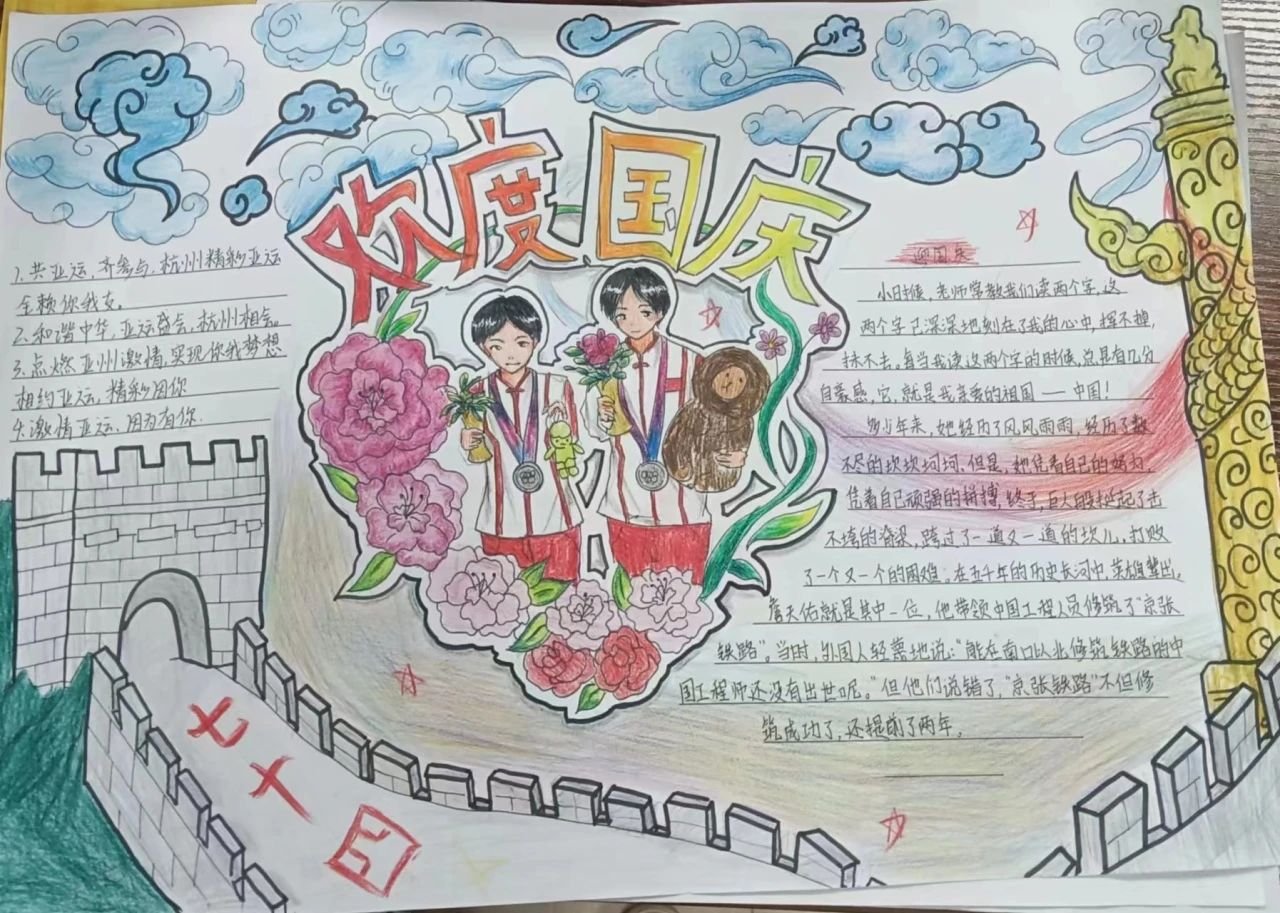 欢度国庆
1.共亚运,齐参与,杭州精彩亚运
全赖你我友。
2.和谐中华,亚运盛会,杭州相会。
3.点燃亚州激情,实现你我梦想
相约亚运,精彩因你
4.激情亚运、因为有你.
迎国庆
小时候,老师常教我们读两个字,这
两个字已深深地刻在了我的心中,挥不掉,
抹不去,每当我读这两个字的时候,总是有几分
自豪感,它,就是我亲爱的祖国——中国!
多少年来,她经历了风风雨雨,经历了数
不尽的坎坎坷坷,但是,她凭着自己的努力,
凭着自己顽强的拼搏,终于,巨人般挺起了击
不垮的脊梁,跨过了一道又一道的坎儿,打败
了一个又一个的困难。在五千年的历史长河中,英雄辈出,
詹天佑就是其中一位,他带领中国工程人员修筑了“京张
铁路”。当时,外国人轻蔑地说:“能在南口以北修筑铁路的中
国工程师还没有出世呢。”但他们说错了,“京张铁路”不但修
筑成功了,还提前了两年。
七十